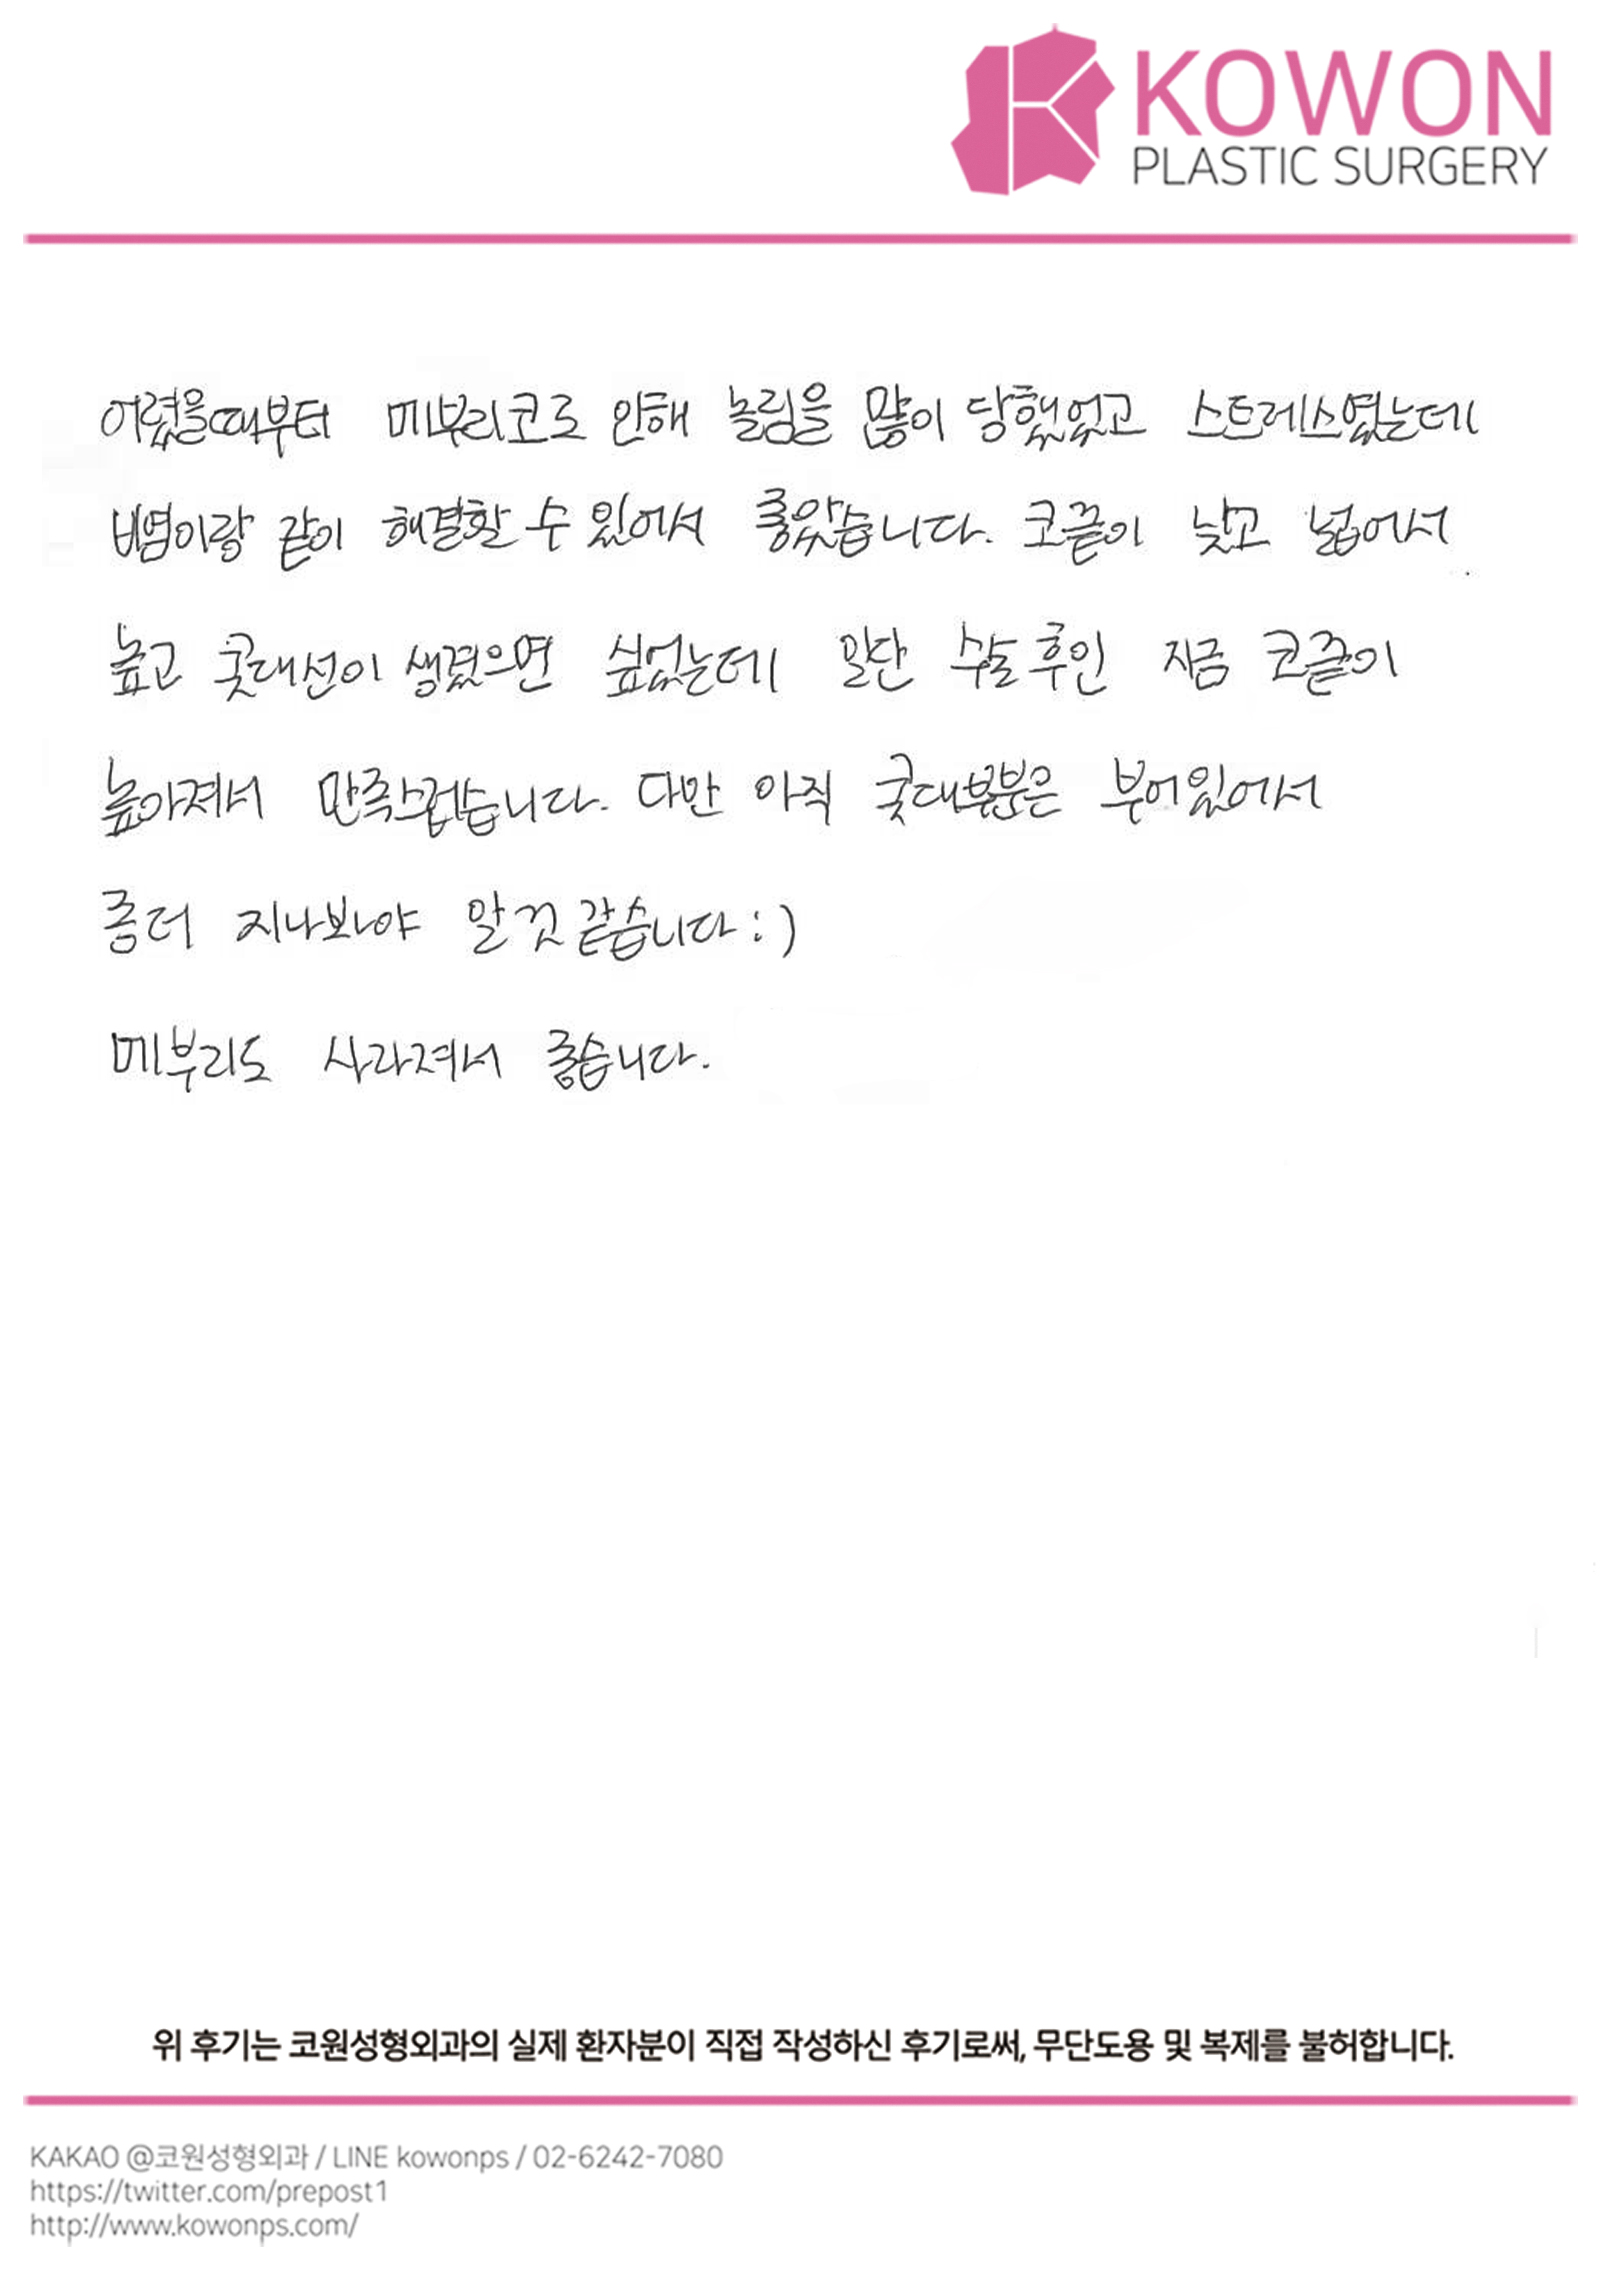 KOWON
PLASTIC SURGERY
어렸을때부터 메부리코로 인해 놀림을 많이 당했었고 스트레스였는데
비염이랑 같이 해결할 수 있어서 좋았습니다. 코끝이 낮고 넓어서
높고 콧대선이 생겼으면 싶었는데 일단 수술후인 지금 코끝이
높아져서 만족스럽습니다. 다만 아직 콧대부분은 부어있어서
좀더 지나보아야 알것 같습니다 :)
메부리도 사라져서 좋습니다.
위 후기는 코원성형외과의 실제 환자분이 직접 작성하신 후기로써, 무단도용 및 복제를 불허합니다.
KAKAO @코원성형외과 / LINE kowonps / 02-6242-7080
https://twitter.com/prepost1
http://www.kowonps.com/